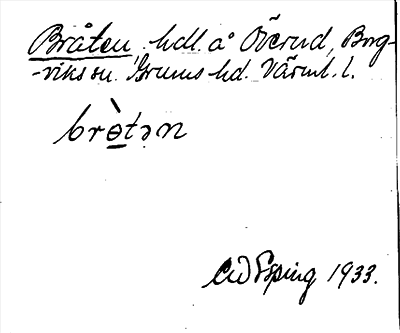 Bråten, hdl. å Överud, Borg-
-viks sn. Grums hd. Värml. l.
brò̲tən
Esping 1933.